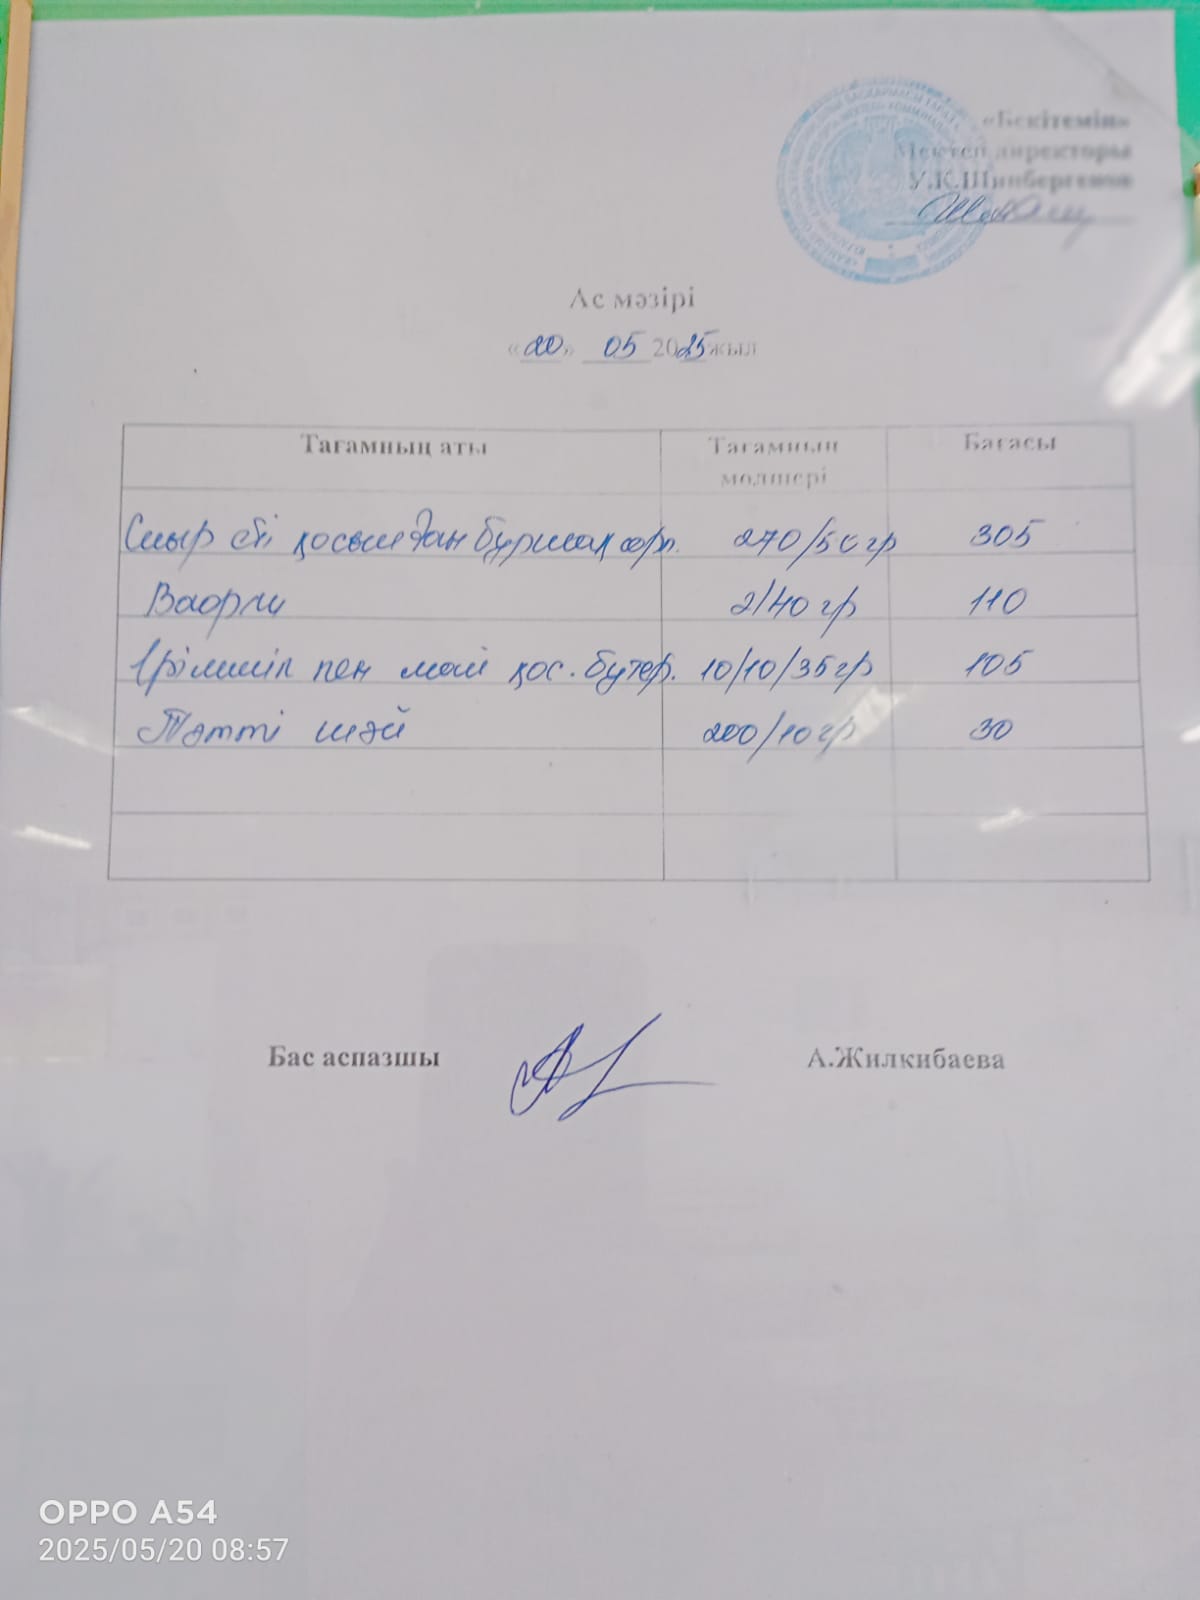 «Бекітемін»
Мектеп директоры
У.К.Шинбергенов
Ас мәзірі
«20» 05 2025 жыл
Тағамның аты Тағамның мөлшері Бағасы
Сиыр еті қосылған бұршақ сорп. 270/50 гр 305
Вафли 2/40 гр 110
Ірімшік пен май қос. бутер. 10/10/35 гр 105
Тәтті шәй 200/10 гр 30
Бас аспазшы А.Жилкибаева
OPPO A54
2025/05/20 08:57